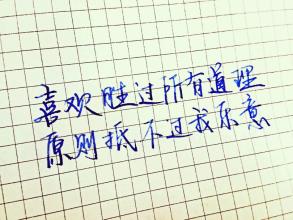 喜欢胜过所有道理
原则抵不过我乐意